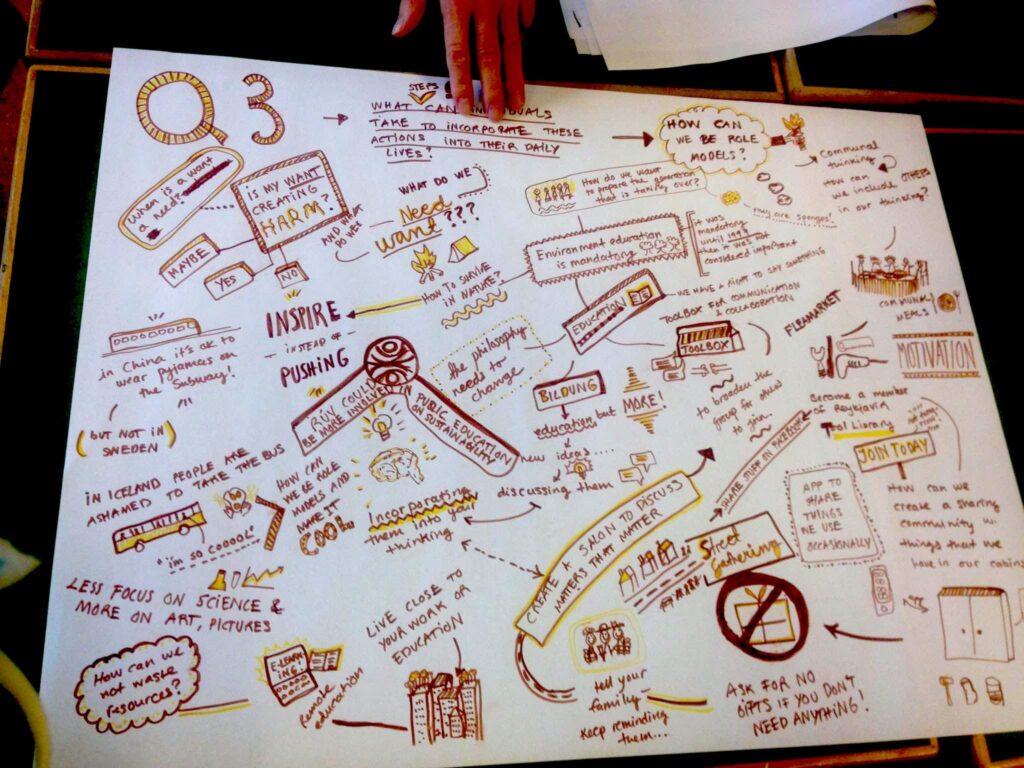 Q3
STEPS
WHAT CAN
TAKE TO INCORPORATE THESE
ACTIONS INTO THEIR DAILY
LIVES?
HOW CAN
WE BE ROLE
MODELS?
Communal
thinking
How can
we include OTHERS
in our thinking?
When is a want
a
need?
IS MY WANT
CREATING
HARM?
MAYBE
YES
NO
WHAT DO WE
Need
AND WHAT
DO WE
want???
How do we want
to prepare the generation
that is taking over?
They are sponges!
Environment education
is mandatory
It was
mandatory
until 199
then it was not
considered important
HOW TO SURVIVE
IN NATURE?
INSPIRE
- INSTEAD OF -
PUSHING
EDUCATION
WE HAVE A RIGHT TO SAY SOMETHING
TOOLBOX FOR COMMUNICATION
& COLLABORATION
TOOLBOX
to broaden the
group for others
to join...
FLEAMARKET
COMMUNAL
MEALS
MOTIVATION
in China it's ok to
wear pyjamas on
the subway!
(BUT NOT IN
SWEDEN)
the philosophy
need to
change
RÚV COULD
BE MORE INVOLVED IN
PUBLIC EDUCATION
ON SUSTAINABILITY
BILDUNG
education but
MORE!
new ideas...
discussing them
Become a member
of Reykjavik
Tool Library
JOIN TODAY
IN ICELAND PEOPLE ARE
ASHAMED TO TAKE THE BUS
"i'm so COOOOL"
HOW CAN
WE BE ROLE
MODELS AND
MAKE IT
COOL
Incorporating
them into your
thinking
CREATE A SALON TO DISCUSS
MATTERS THAT MATTER
SHARE STUFF ON FACEBOOK
Street
Gathering
APP TO
SHARE
THINGS
WE USE
OCCASIONALLY
How can we
create a sharing
community w.
things that we
have in our cabins
LESS FOCUS ON SCIENCE &
MORE ON ART, PICTURES
How can we
not waste
resources?
E-LEARN
ING
Remote
education
LIVE CLOSE TO
YOUR WORK OR
EDUCATION
tell your
family
keep reminding
them...
ASK FOR NO
GIFTS IF YOU DON'T
NEED ANYTHING!